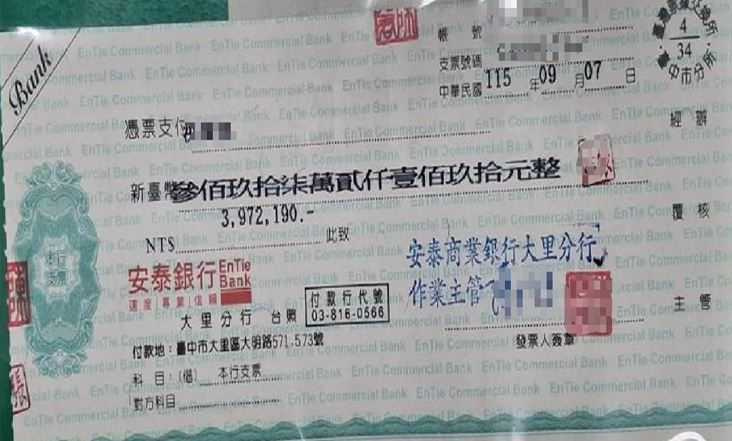 Bank
帳 號
支票號碼
中華民國 115 年 09 月 07 日
4
34
臺中市分所
憑票支付
經 辦
新臺幣參佰玖拾柒萬貳仟壹佰玖拾元整
3,972,190.-
NT$
此致
覆 核
本行
支票
安泰銀行 EnTie Bank
速度 專業 信賴
安泰商業銀行大里分行
作業主管
大里分行 台照
付款行代號
03-816-0566
主 管
付款地：臺中市大里區大明路571.573號
發票人簽章
科 目：(借) 本行支票
對方科目
EnTie Commercial Bank